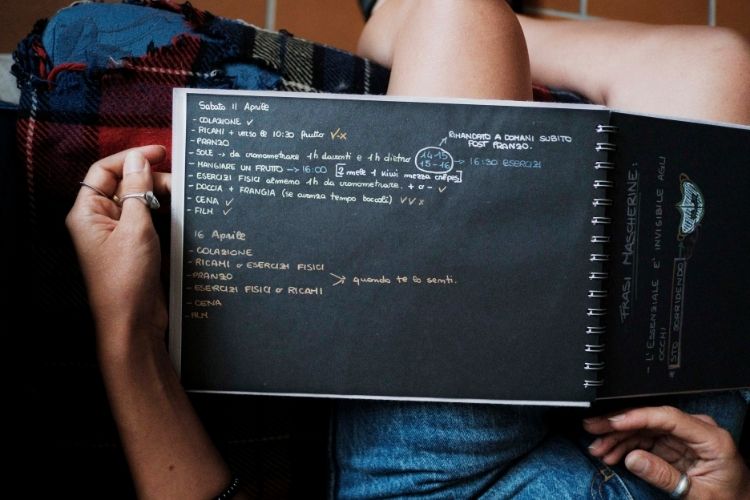 Sabato 11 Aprile
- COLAZIONE ✓
- RICAMI + verso le 10:30 frutto ✓-x
- PRANZO
- SOLE → da cronometrare 1h davanti e 1h dietro 14-15 15-16
RIMANDATO A DOMANI SUBITO
POST PRANZO.
→ 16:30 ESERCIZI
- MANGIARE UN FRUTTO → 16:00 [2 mele 1 kiwi mezza crêpes]
- ESERCIZI FISICI almeno 1h da cronometrare. + o - ✓
- DOCCIA + FRANGIA (se avanza tempo boccoli) ✓✓x
- CENA ✓
- FILM ✓
16 Aprile
- COLAZIONE
- RICAMI o ESERCIZI FISICI
- PRANZO
→ quando te lo senti.
- ESERCIZI FISICI o RICAMI
- CENA
- FILM
FRASI MASCHERINE:
- L'ESSENZIALE E' INVISIBILE AGLI
OCCHI
STO SORRIDENDO